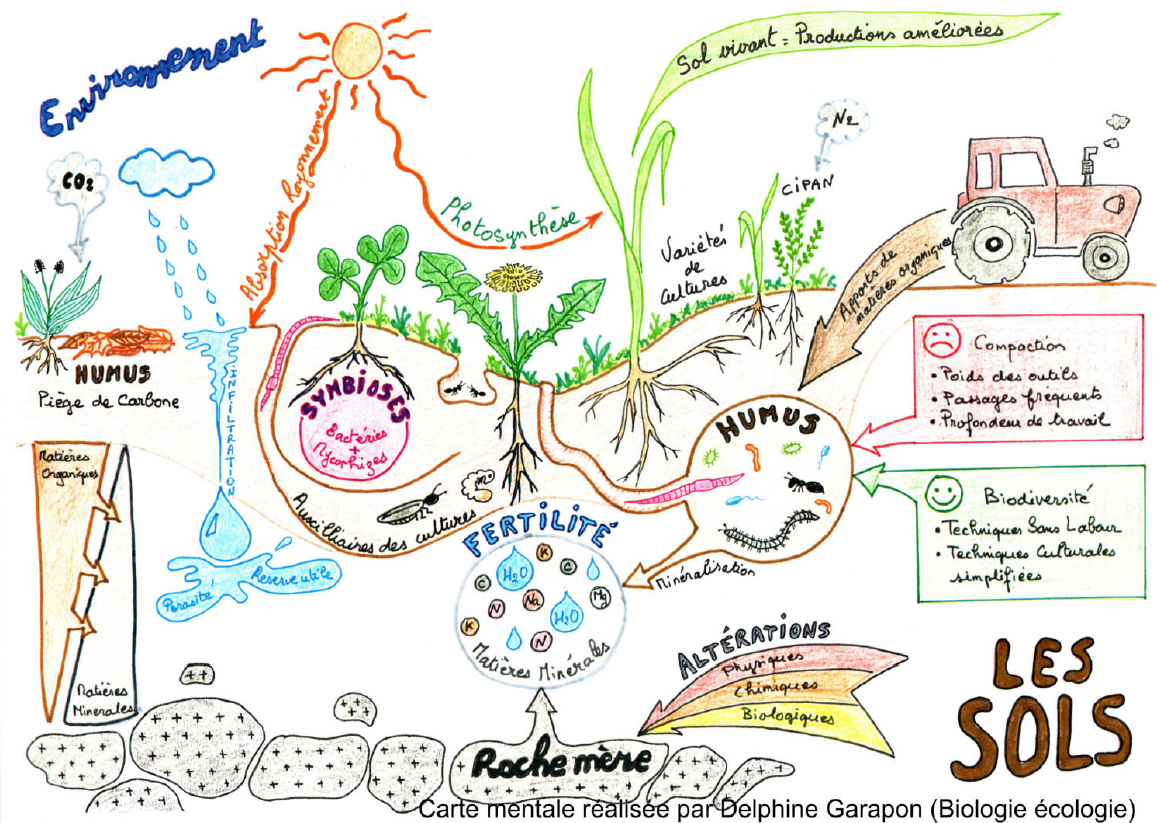 Environnement
Sol vivant = Productions améliorées
N2
CO2
Absorption Rayonnement
Photosynthèse
CIPAN
Variétés
de
Cultures
Apports de
matières organiques
HUMUS
Piège de Carbone
INFILTRATION
SYMBIOSES
Bactéries
+
Mycorhizes
HUMUS
Compaction
• Poids des outils
• Passages fréquents
• Profondeur de travail
Matières
Organiques
Auxilliaires des cultures
FERTILITÉ
Biodiversité
• Techniques Sans Labour
• Techniques Culturales
simplifiées
Minéralisation
Porosité
Réserve utile
K
C
H2O
C
N
Na
Mg
K
H2O
N
Matières Minérales
Matières
Minérales
ALTÉRATIONS
Physiques
Chimiques
Biologiques
LES
SOLS
Roche mère
Carte mentale réalisée par Delphine Garapon (Biologie écologie)